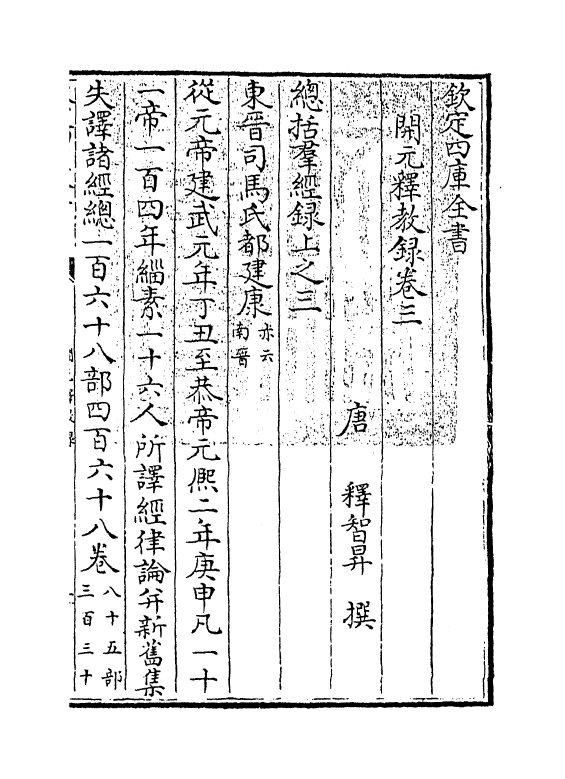 欽定四庫全書
開元釋教録卷三
唐 釋智昇 撰
總括羣經録上之三
東晉司馬氏都建康亦云南晉
從元帝建武元年丁丑至恭帝元熈二年庚申凡一十
一帝一百四年緇素一十六人所譯經律論并新舊集
失譯諸經總一百六十八部四百六十八卷八十五部三百三十